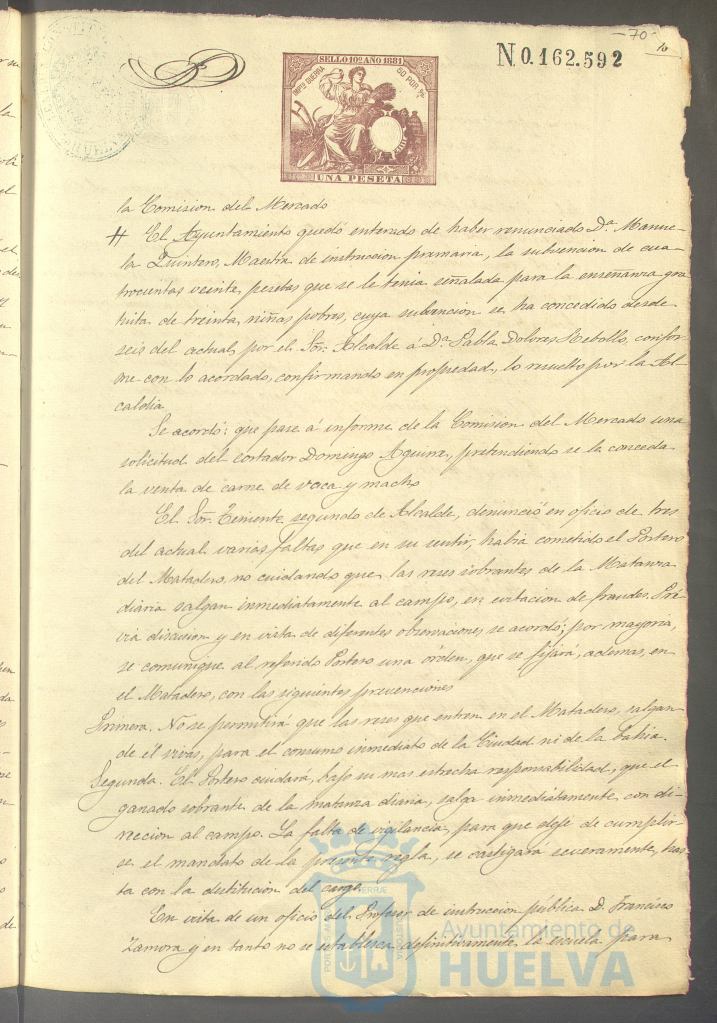 -70-
10
N 0.162.592
SELLO 10º AÑO 1881
IMPTO GUERRA
50 POR %
UNA PESETA
la Comision del Mercado
# El Ayuntamiento quedó enterado de haber renunciado D.ª Manue-
la Quintero, Maestra de instruccion primaria, la subvencion de cua-
trocientas veinte pesetas que se le tenia señalada para la enseñanza gra
tuita de treinta niñas pobres, cuya subvencion se ha concedido desde
seis del actual por el Sor. Alcalde á D.ª Pabla Dolores Rebollo, confor
me con lo acordado, confirmando en propiedad, lo resuelto por la Al-
caldia
Se acordó: que pase á informe de la Comision del Mercado una
solicitud del cortador Domingo Aguirre, pretendiendo se le conceda
la venta de carne de vaca y macho
El Sor. Teniente segundo de Alcalde, denunció en oficio de tres
del actual varias faltas que en su sentir, habia cometido el Portero
del Matadero, no cuidando que las reses sobrantes de la Matanza
diaria salgan inmediatamente al campo, en evitacion de fraudes. Pré-
via discusion y en vista de diferentes observaciones, se acordó, por mayoria,
se comunique al referido Portero una órden, que se fijará, ademas, en
el Matadero, con las siguientes prevenciones
Primera. No se permitirá que las reses que entren en el Matadero, salgan
de él vivas, para el consumo inmediato de la Ciudad ni de la bahia.
Segunda. El Portero cuidará, bajo su mas estrecha responsabilidad, que el
ganado sobrante de la matanza diaria, salga inmediatamente con di-
reccion al campo. La falta de vigilancia, para que deje de cumplir-
se el mandato de la presente regla, se castigará severamente, has-
ta con la destitucion del cargo
En vista de un oficio del Profesor de instruccion pública D. Francisco
Zamora y en tanto no se establezca definitivamente la escuela para
Ayuntamiento de
HUELVA